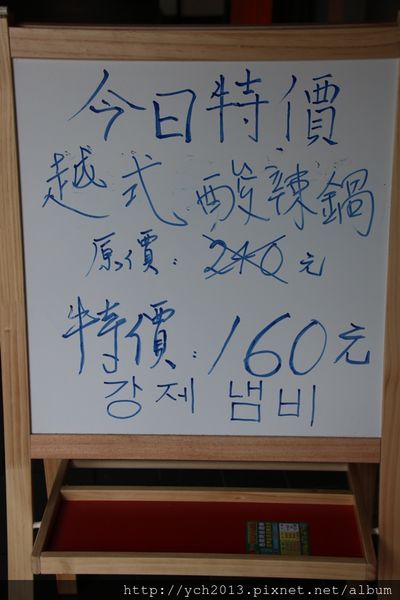 今日特價
越式酸辣鍋
原價：240元
特價：160元
강제 냄비
http://ych2013.pixnet.net/album